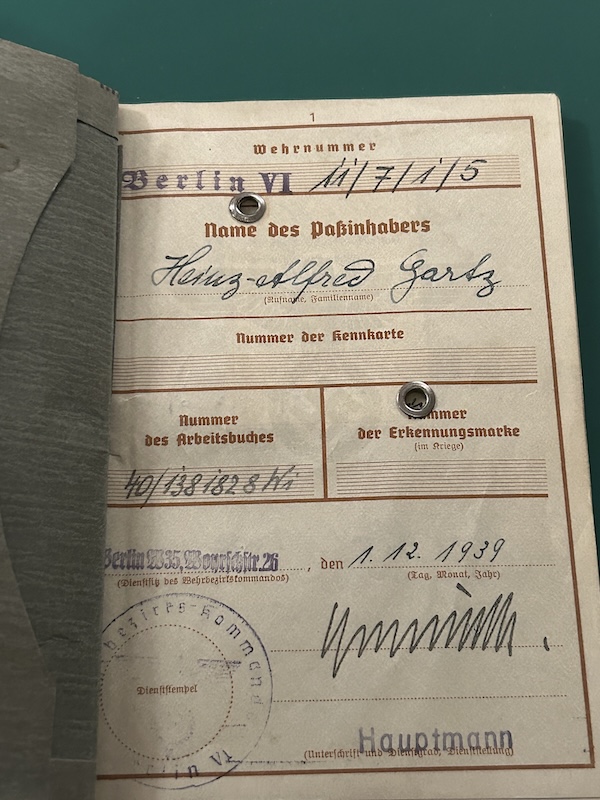 1
Wehrnummer
Berlin VI 11/7/1/5
Name des Paßinhabers
Heinz-Alfred Gartz
(Rufname, Familienname)
Nummer der Kennkarte
Nummer
des Arbeitsbuches
40/138 182 8 Wi
Nummer
der Erkennungsmarke
(im Kriege)
Berlin W35, Woyrschstr. 26, den 1. 12. 1939
(Dienstsitz des Wehrbezirkskommandos) (Tag, Monat, Jahr)
bezirks-Kommand
Dienststempel
Berlin VI
Hauptmann
(Unterschrift und Dienstgrad, Dienststellung)